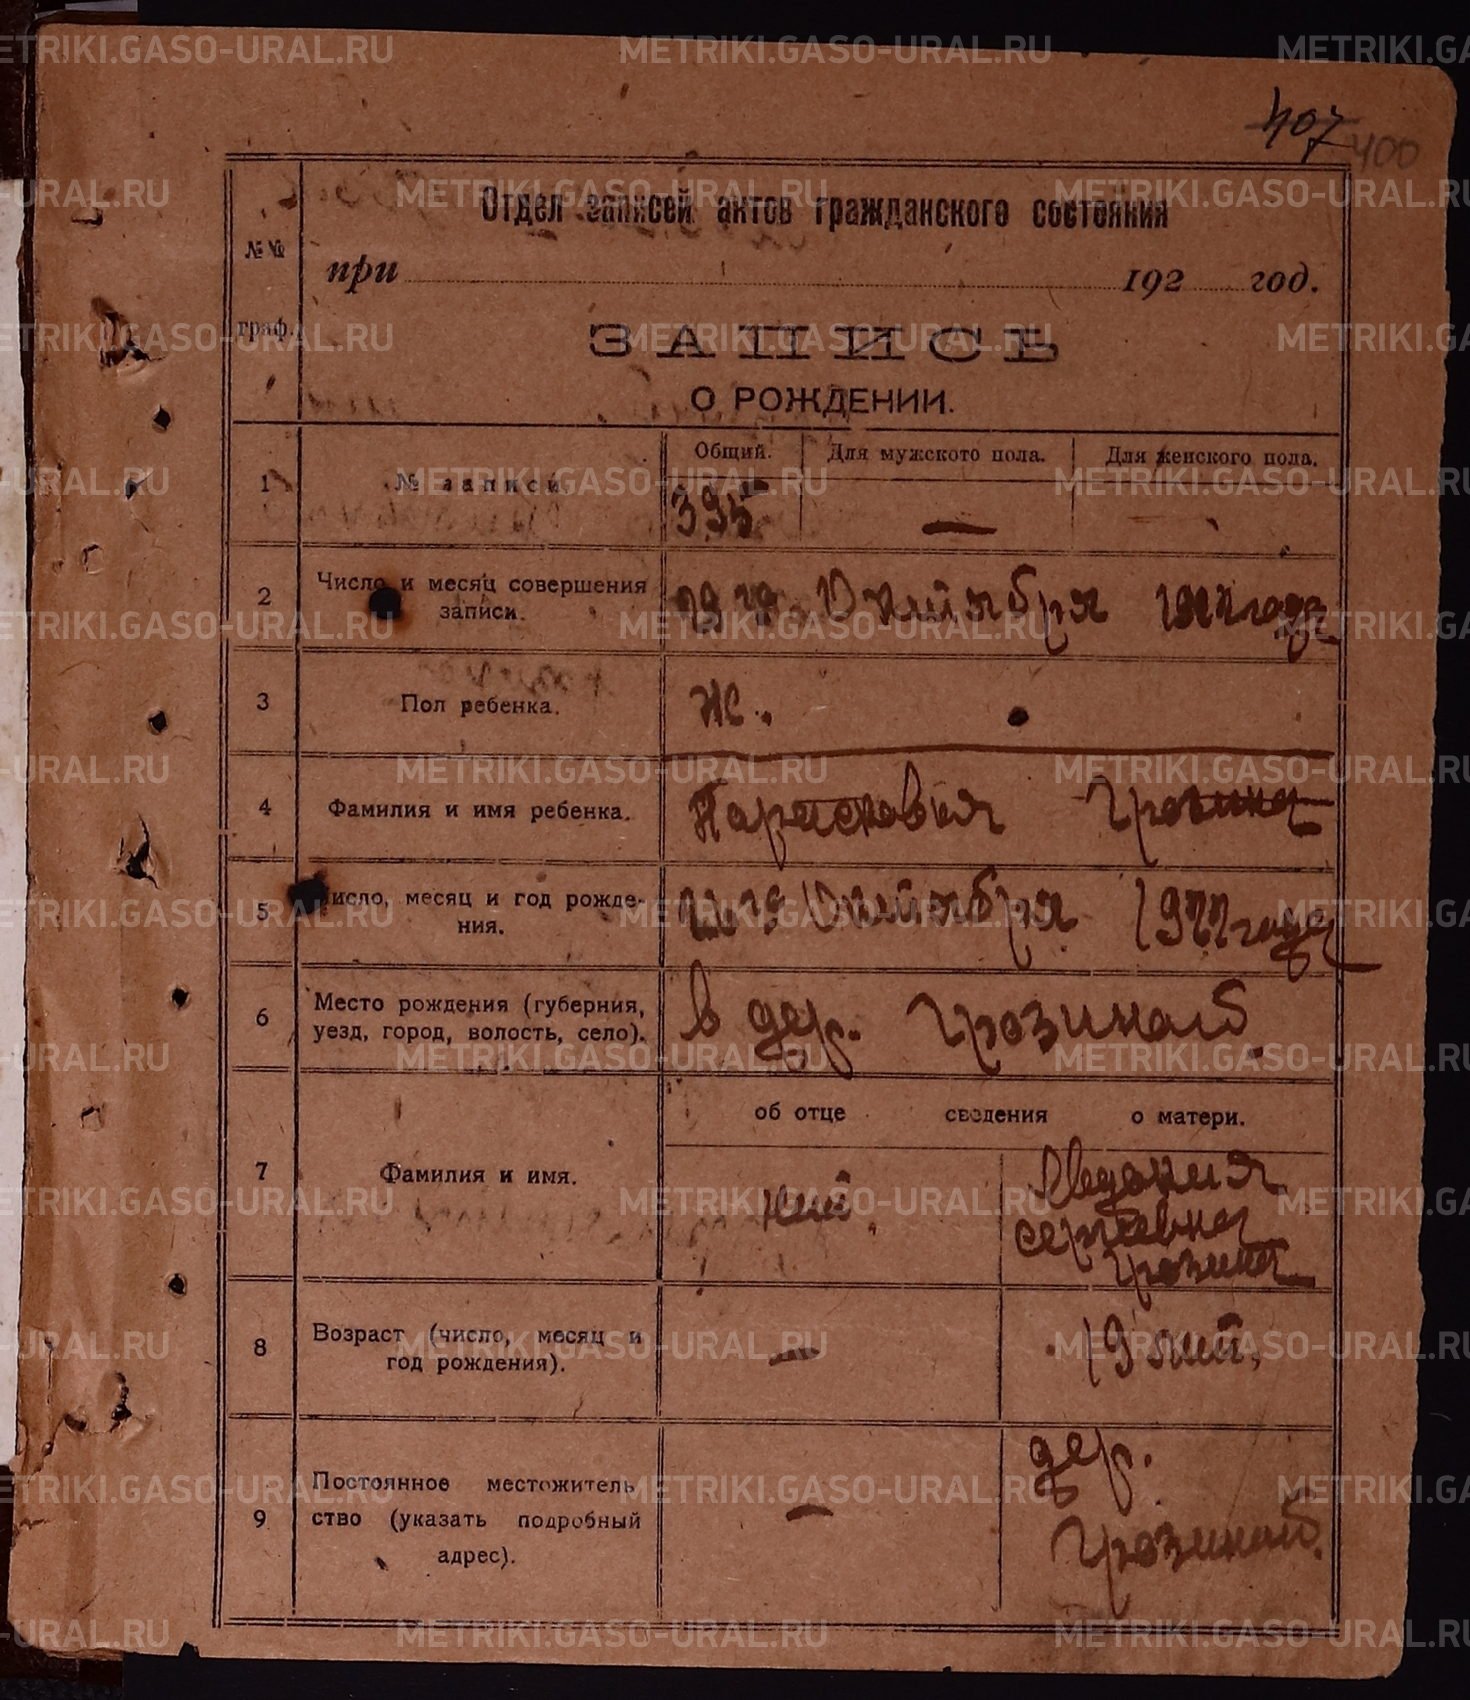 METRIKI.GASO-URAL.RU
407
400
Отдел записей актов гражданского состояния
№№ граф.
при 192 год.
ЗАПИСЬ
О РОЖДЕНИИ.
Общий. Для мужского пола. Для женского пола.
1 № записи. 395 —
2 Число и месяц совершения
записи.
29 Октября 1922 года
3 Пол ребенка. Ж.
4 Фамилия и имя ребенка. Парасковья Грозина
5 Число, месяц и год рожде-
ния.
Октября 1922 года
6 Место рождения (губерния,
уезд, город, волость, село).
в дер. Грозиной
об отце сведения о матери.
7 Фамилия и имя. нет. Авдокия
сергеевна
Грозина
8 Возраст (число, месяц и
год рождения).
— 19 лет.
9 Постоянное местожитель
ство (указать подробный
адрес).
— дер.
Грозиной.